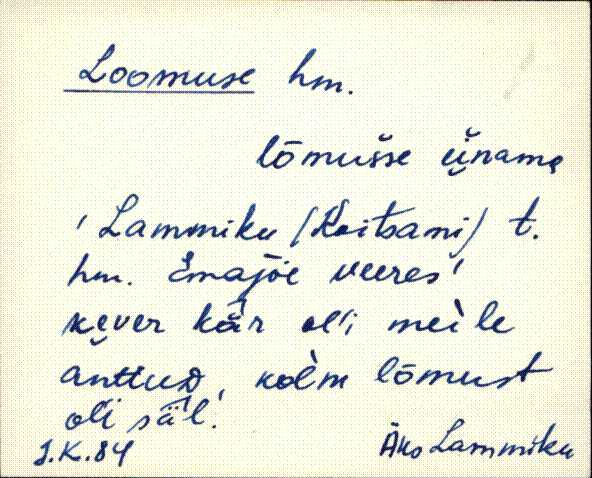 Loomuse hm.
lõmušse ṷ̈nama
'Lammiku (Koitsani) t.
hm. Emajõe veeres'
kever kär ol'i meìle
änttuᴅ, kolm lõmust
ol'i säl.
J.K.84 Äko Lammiku